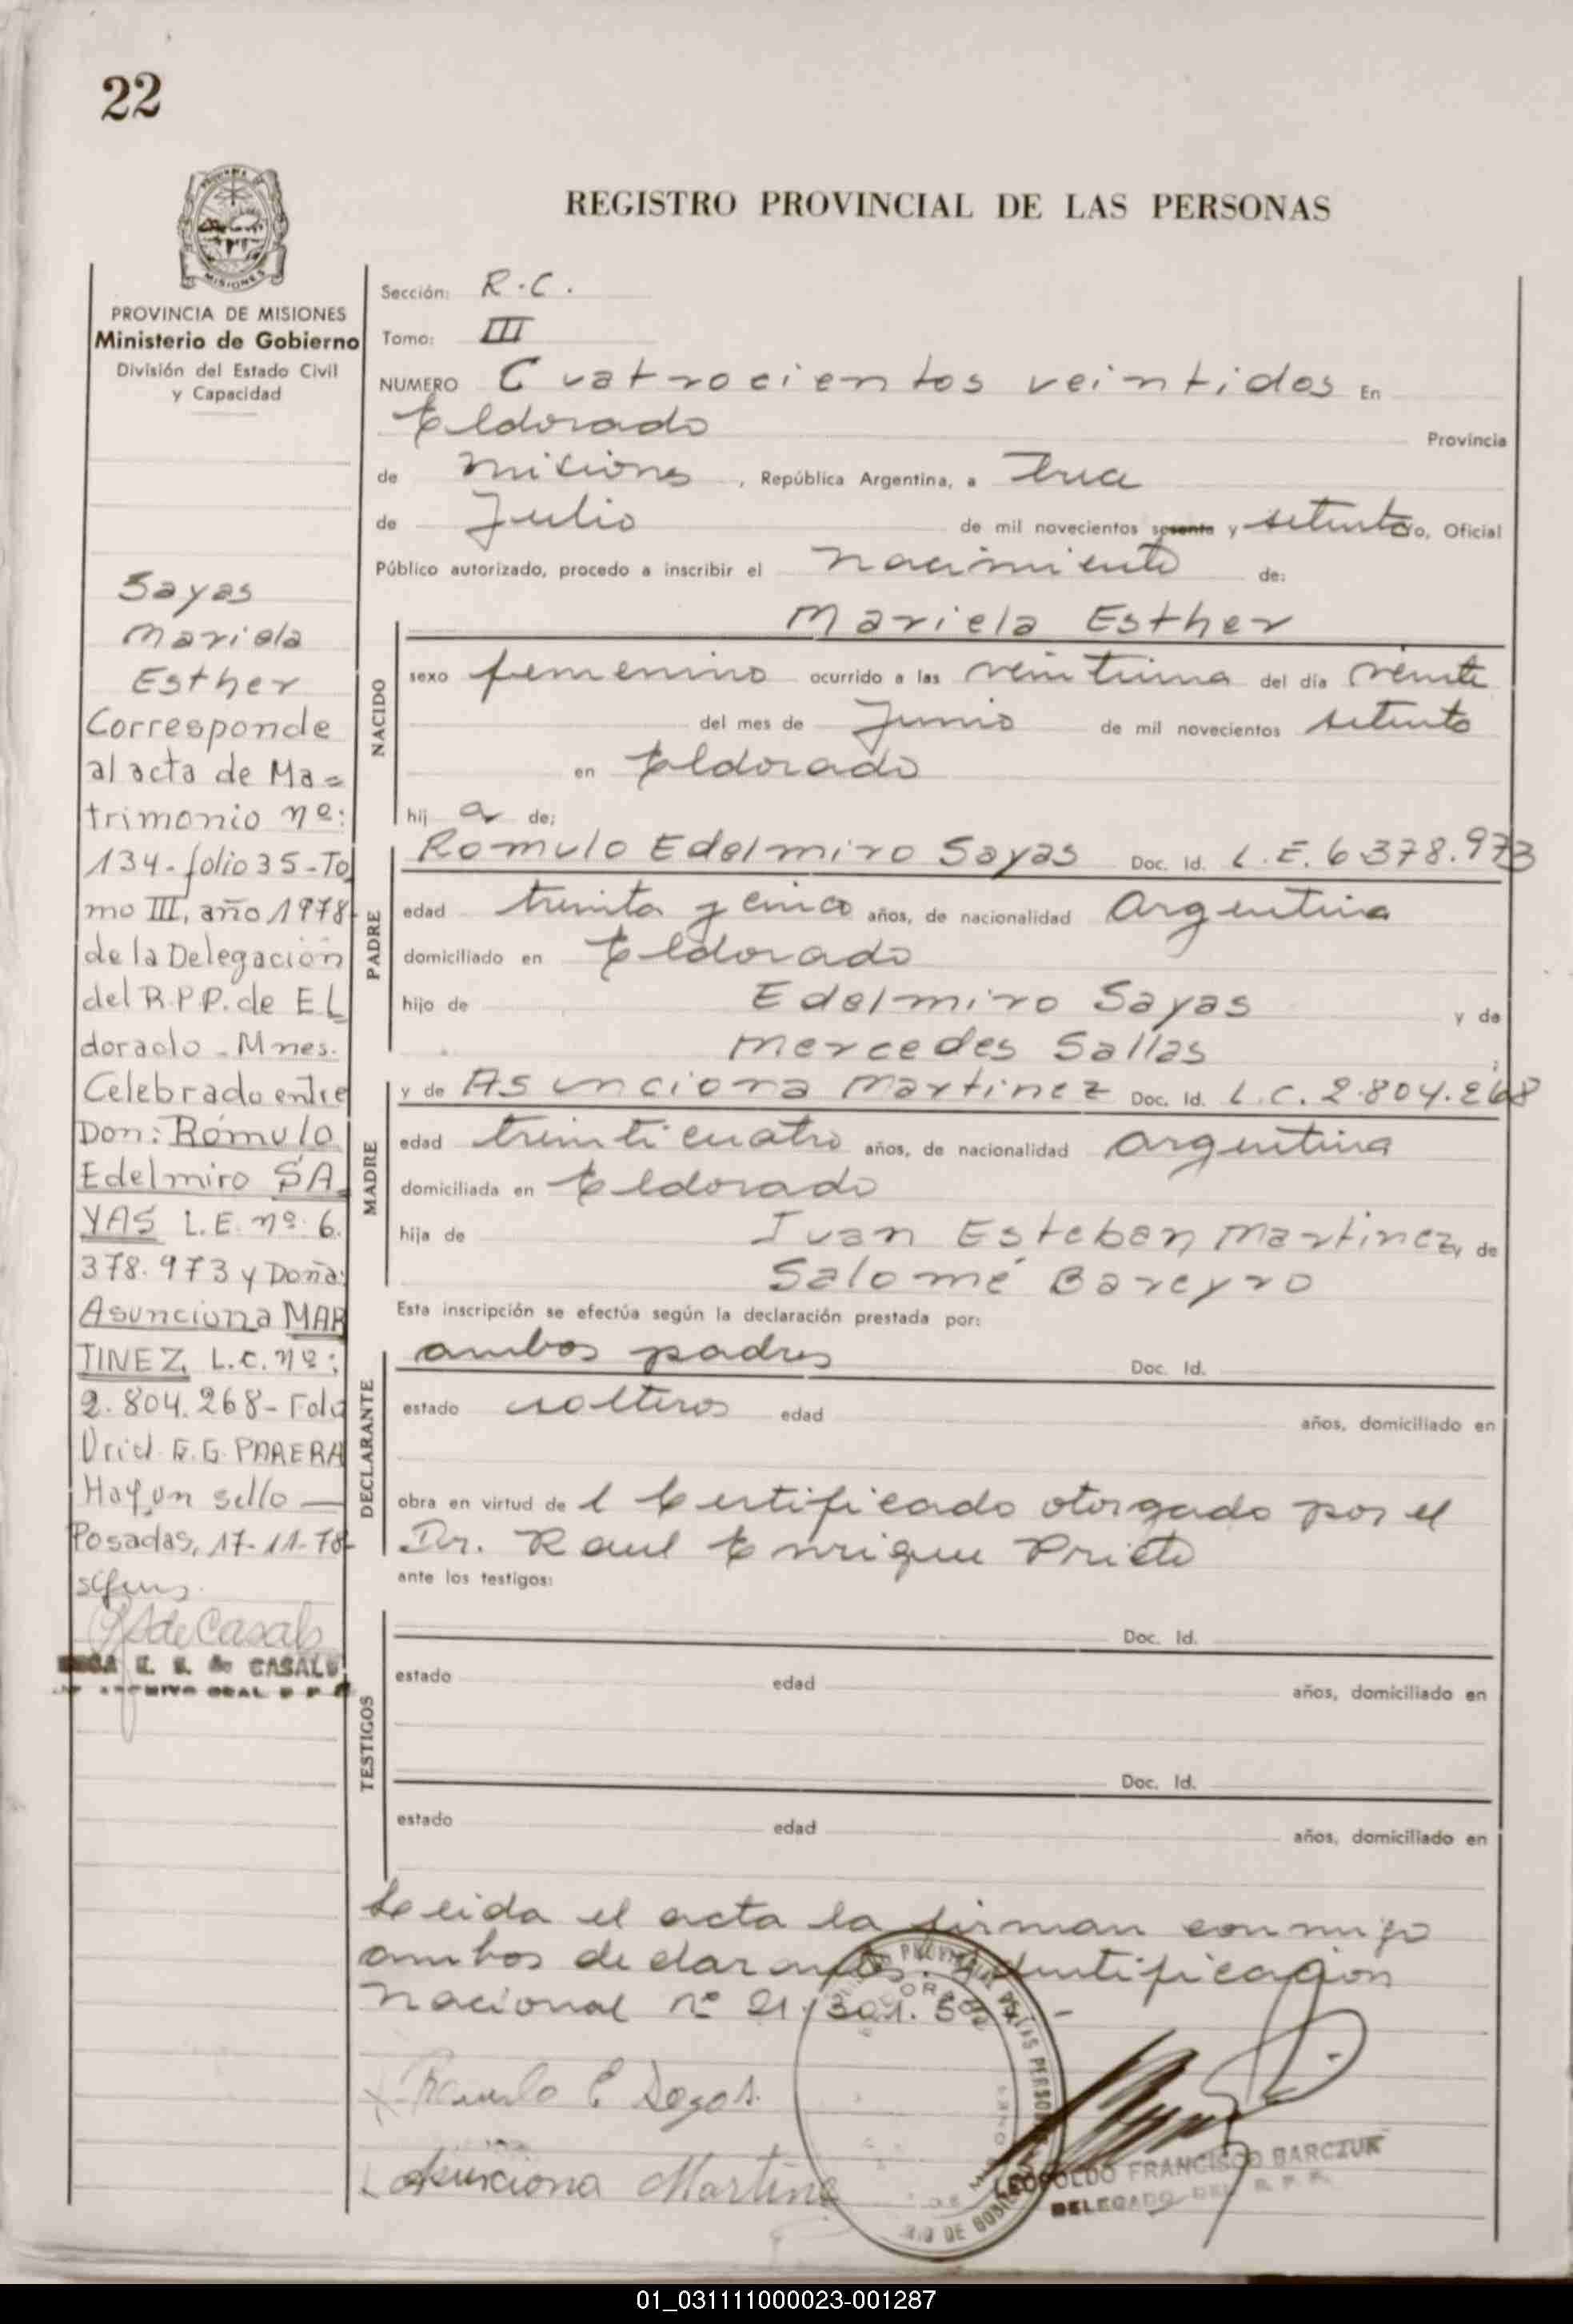 22
REGISTRO PROVINCIAL DE LAS PERSONAS
MISIONES
PROVINCIA DE MISIONES
Ministerio de Gobierno
División del Estado Civil
y Capacidad
Sayas
Mariela
Esther
Corresponde
al acta de Ma=
trimonio nº:
134-folio 35-To
mo III, año 1978-
de la Delegación
del R.P.P. de EL
dorado - Mnes.
Celebrado entre
Don: Rómulo
Edelmiro SA
YAS L.E. nº 6.
378.973 y Doña:
Asunciona MAR
TINEZ L.C. nº:
2.804.268- Fdo
G.G. PARERA
Hay un sello —
Posadas, 17-11-78-
de Casals
E. S. de CASALS
Sección: R.C.
Tomo: III
NUMERO Cuatrocientos veintidos En
Eldorado Provincia
de Misiones, República Argentina, a Trece
de Julio de mil novecientos sesenta y setenta yo, Oficial
Público autorizado, procedo a inscribir el nacimiento de:
NACIDO
Mariela Esther
sexo femenino ocurrido a las veintiuna del día veinte
del mes de Junio de mil novecientos setenta
en Eldorado
hij a de;
PADRE
Romulo Edelmiro Sayas Doc. Id. L.E. 6.378.973
edad treinta y cinco años, de nacionalidad Argentina
domiciliado en Eldorado
hijo de Edelmiro Sayas y de
Mercedes Sallas ;
MADRE
y de Asunciona Martinez Doc. Id. L.C. 2.804.268
edad treinticuatro años, de nacionalidad Argentina
domiciliada en Eldorado
hija de Juan Esteban Martinez y de
Salomé Bareyro
Esta inscripción se efectúa según la declaración prestada por:
DECLARANTE
ambos padres Doc. Id.
estado solteros edad años, domiciliado en
obra en virtud de l Certificado otorgado por el
Dr. Raul Enrique Prieto
ante los testigos:
TESTIGOS
Doc. Id.
estado edad años, domiciliado en
Doc. Id.
estado edad años, domiciliado en
Leida el acta la firman conmigo
ambos declarantes. Identificación
Nacional Nº 21.301.
Romulo E Sayas.
Asunciona Martinez
LEOPOLDO FRANCISCO BARCZUK
DELEGADO DEL R. P. P.
01_031111000023-001287